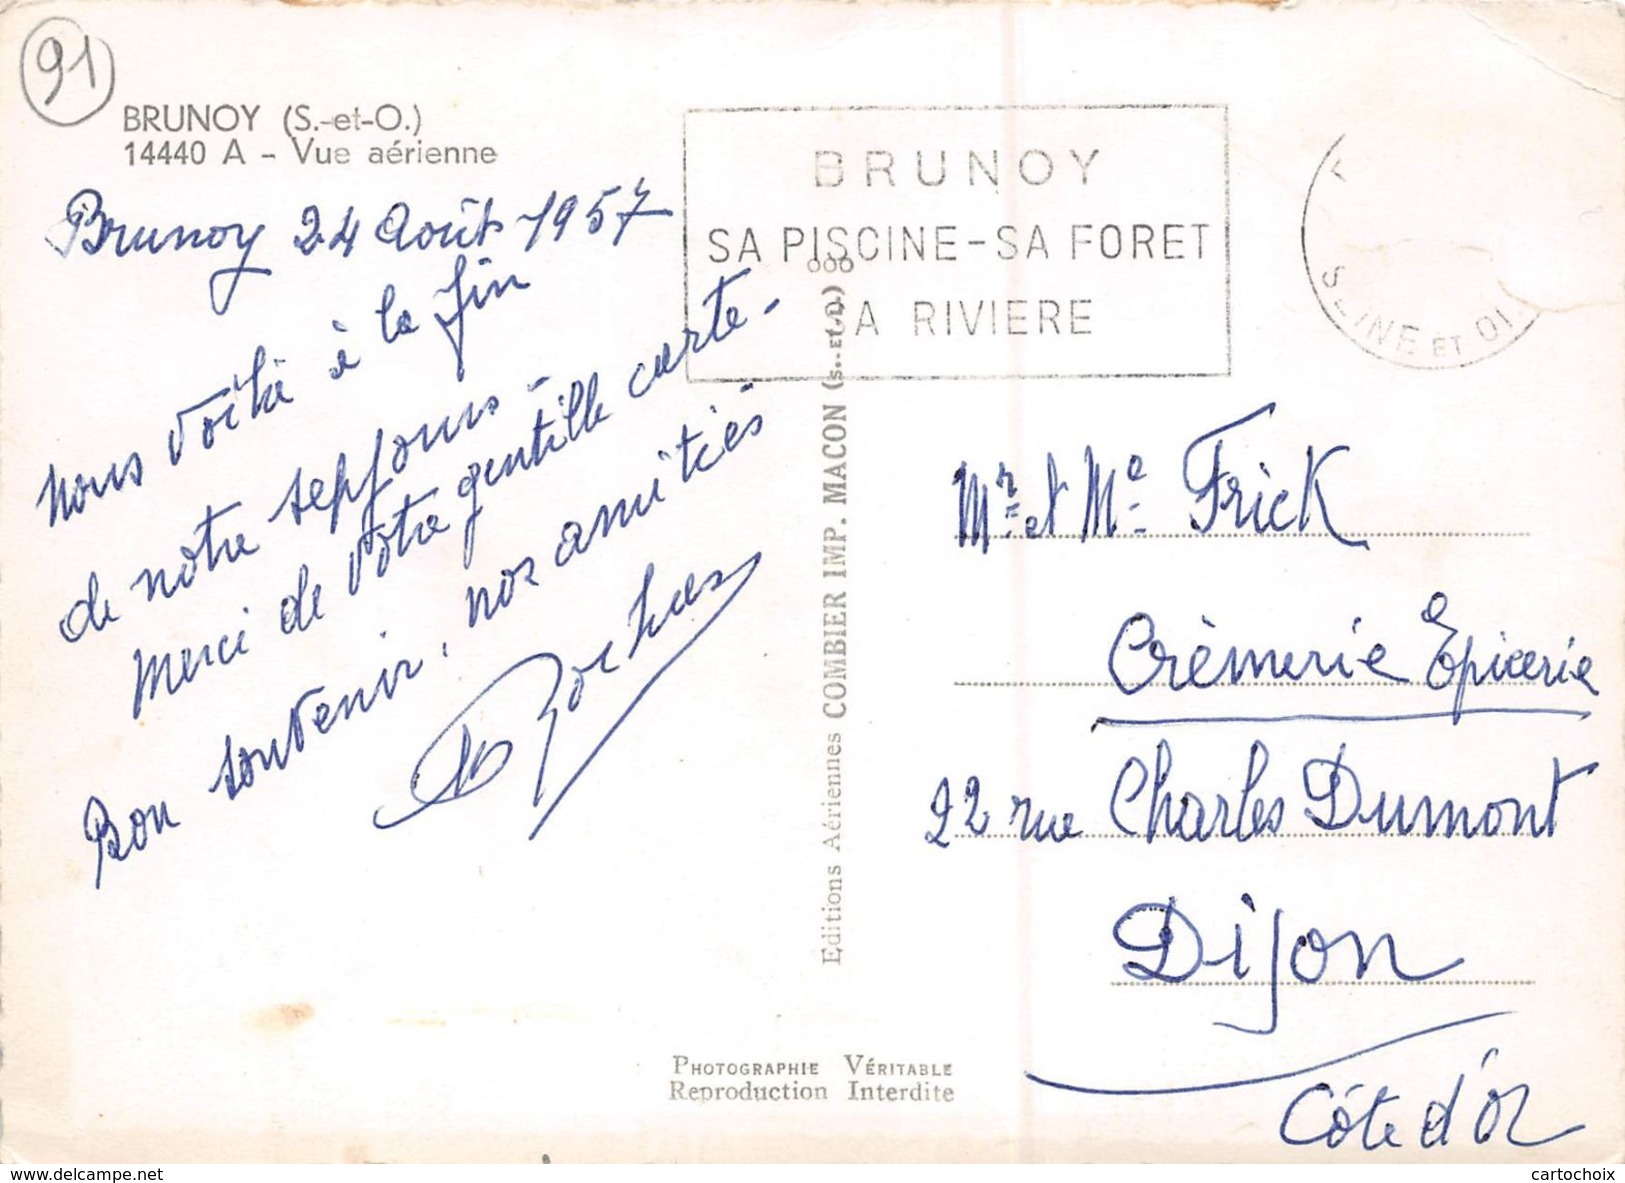 91
BRUNOY (S.-et-O.)
14440 A - Vue aérienne
Brunoy 24 Août 1957
Nous voilà à la fin
de notre séjour -
Merci de votre gentille carte -
Bon souvenir, nos amitiés
BRUNOY
SA PISCINE - SA FORET
SA RIVIERE
SEINE ET OI
Editions Aériennes COMBIER IMP. MACON (S.-ET-L.)
Mr et Me Frick
Crèmerie Epicerie
22 rue Charles Dumont
Dijon
Côte d'Or
PHOTOGRAPHIE VÉRITABLE
Reproduction Interdite
www.delcampe.net
cartochoix